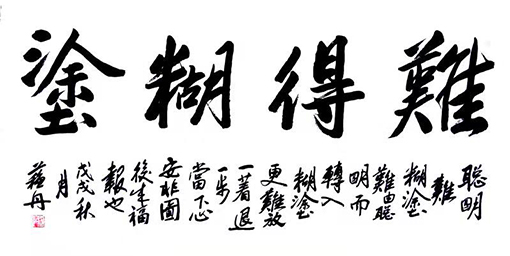 難得糊塗
聰明
難
糊塗
難由聰
明而
轉入
糊塗
更難放
一著退
一步
當下心
安非圖
後來福
報也
戊戌秋
月
丹